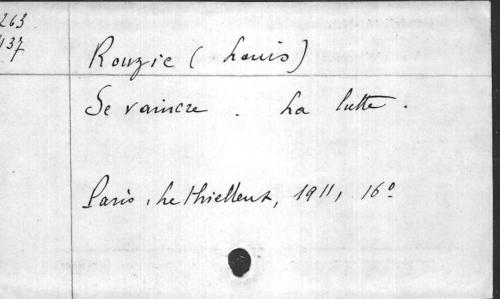 263
137
Rouzic (Louis)
Se vaincre. La lutte.
Paris, Lethielleux, 1911, 16º